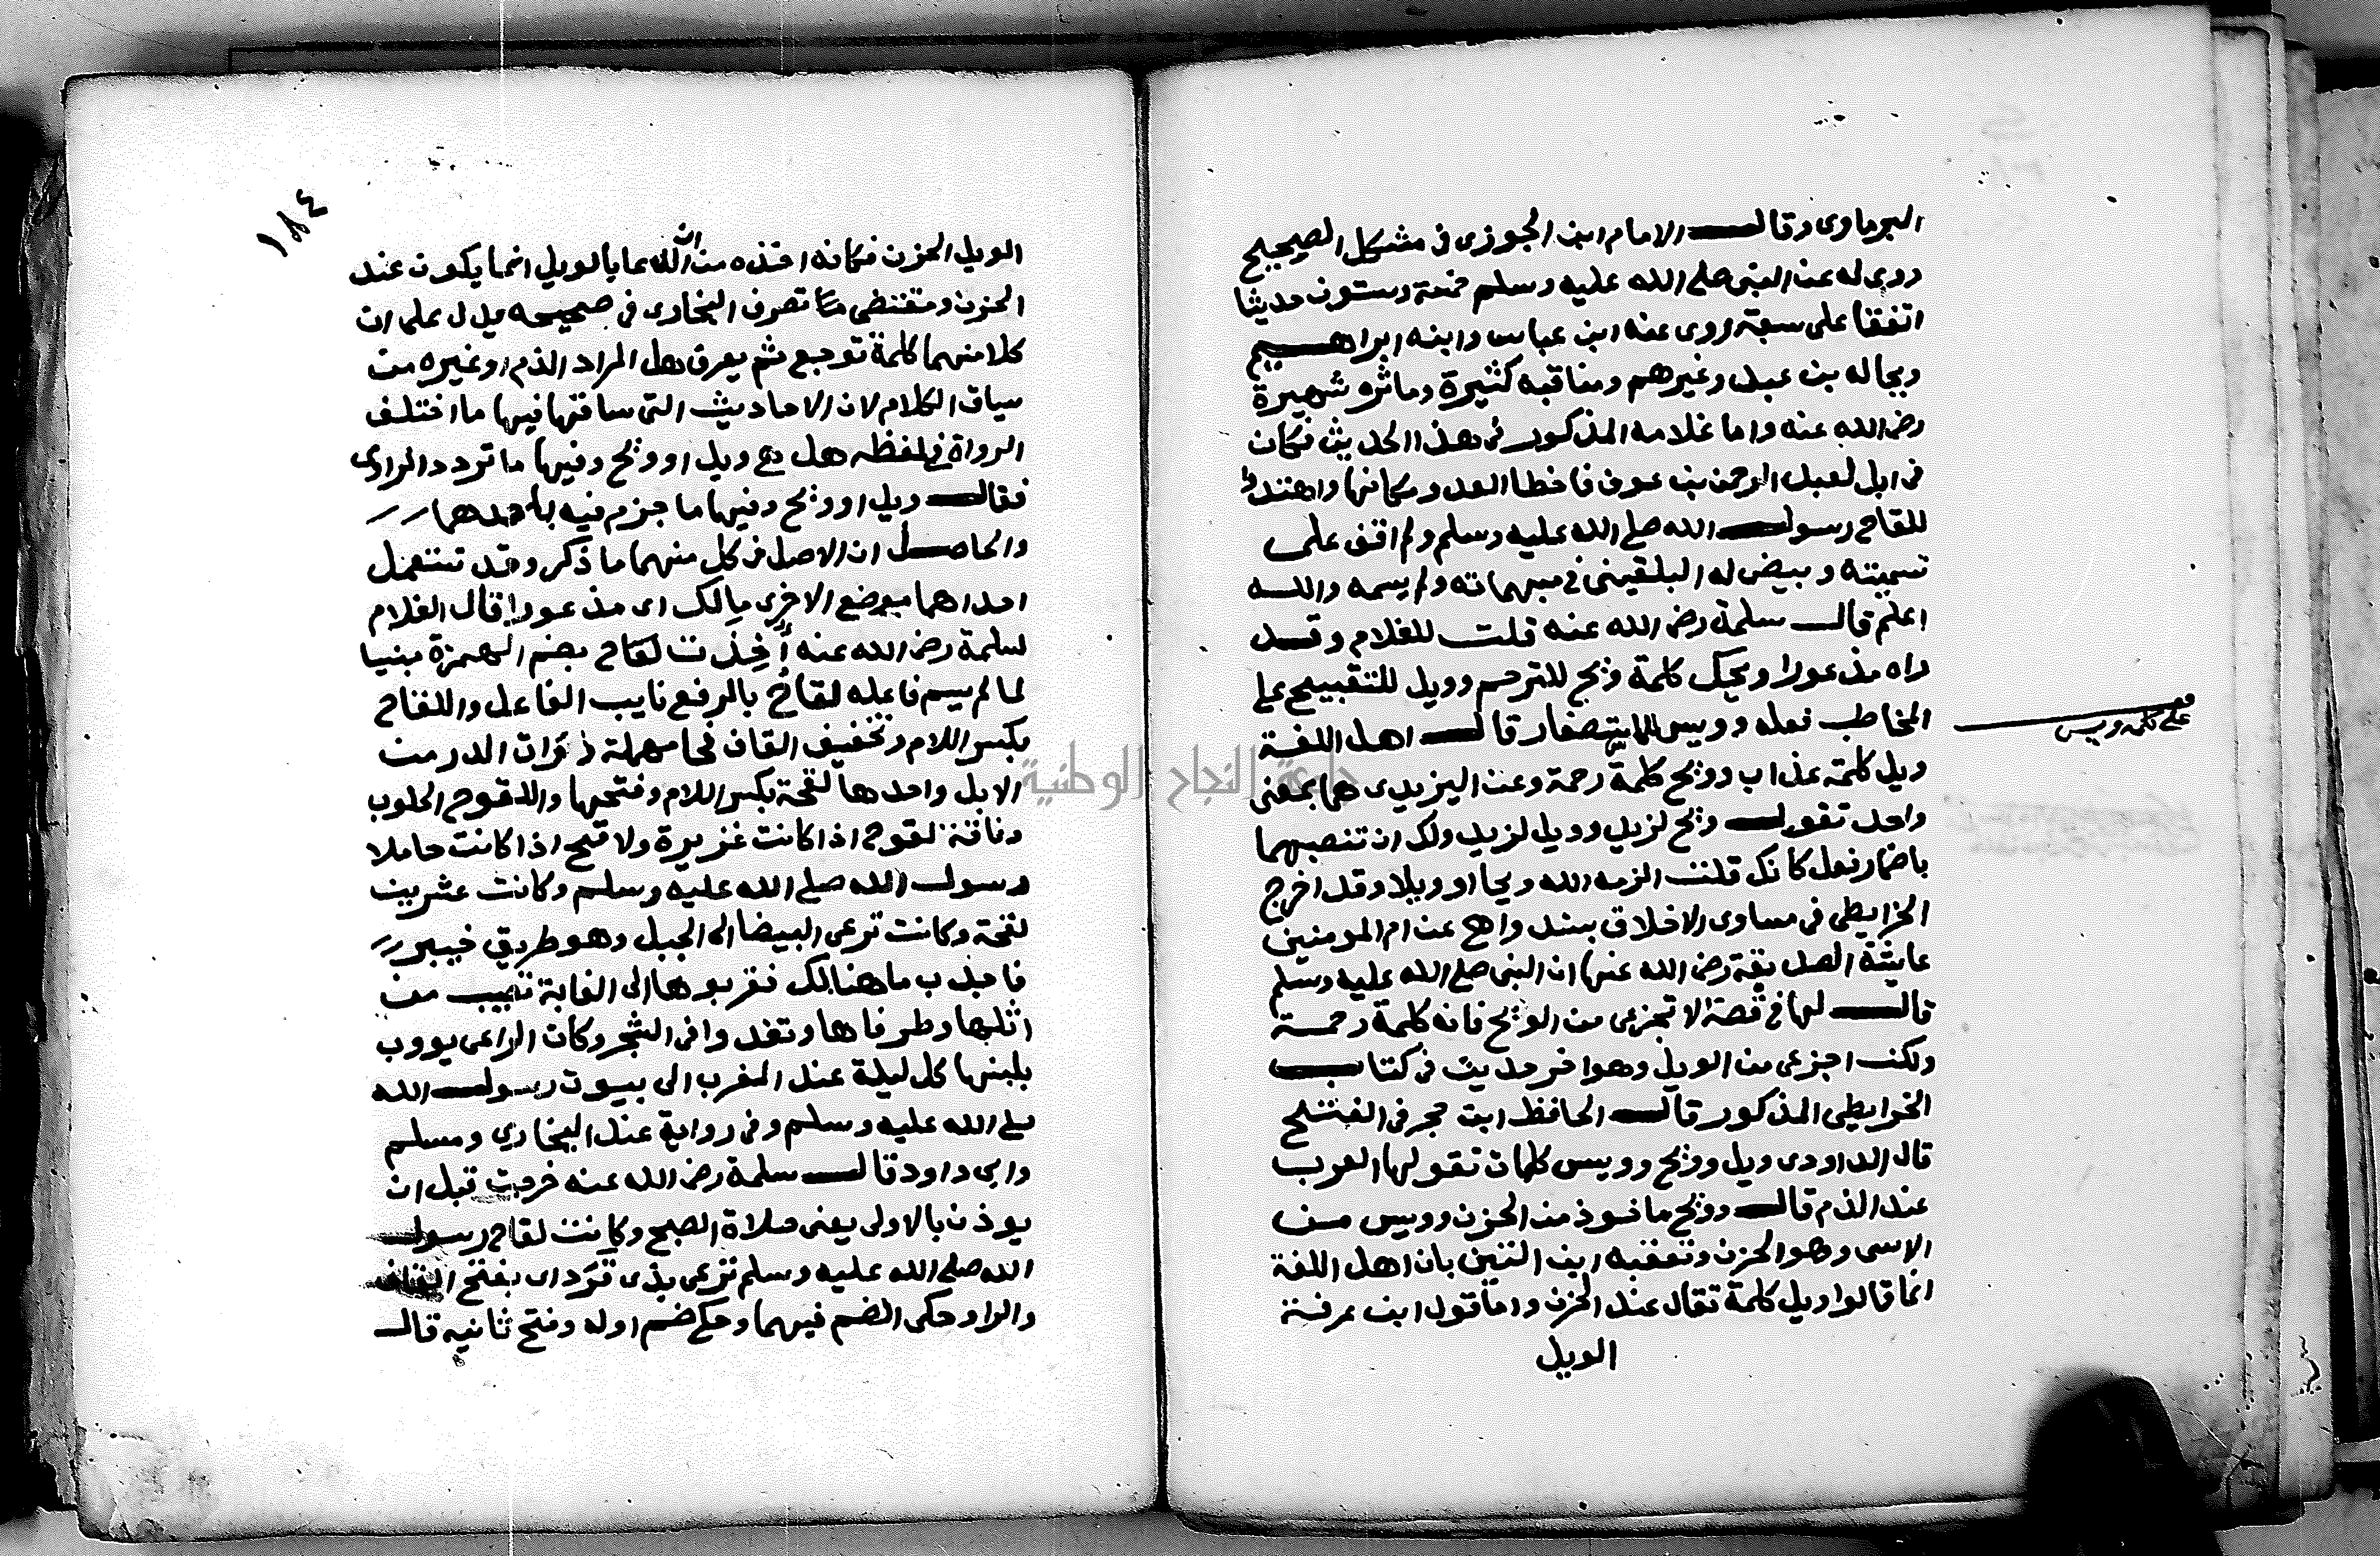 البرماوى وقال الامام ابن الجوزى فى مشكل الصحيح
روى له عن النبى صلى الله عليه وسلم خمسة وستون حديثا
اتفقا على ستة روى عنه ابن عباس وابنه ابراهيم
وبجاله بن عبد وغيرهم ومناقبه كثيرة وماثره شهيرة
رضى الله عنه واما غلامه المذكور فى هذا الحديث فكان
فى ابل لعبد الرحمن بن عوف فاخطا العدو مكانها واهتدوا
للقاح رسول الله صلى الله عليه وسلم ولم اقف على
تسميته وبيض له البلقينى فى مبهماته ولم يسمه والله
اعلم قال سلمة رضى الله عنه قلت للغلام وقد
راه مذعورا ويحك كلمة ويح للترحم وويل للتقبيح على
المخاطب فعله وويس للاستصغار قال اهل اللغة
على كلمة ويس
ويل كلمة عذاب وويح كلمة رحمة وعن اليزيدى هما بمعنى
واحد تقول ويح لزيد وويل لزيد ولك ان تنصبهما
باضمار فعل كانك قلت الزمه الله ويحا او ويلا وقد اخرج
الخرايطى فى مساوى الاخلاق بسند واهٍ عن ام المومنين
عايشة الصديقة رضى الله عنها ان النبى صلى الله عليه وسلم
قال لها فى قصة لا تجزعى من الويح فانه كلمة رحمة
ولكن اجزعى من الويل وهو اخر حديث فى كتاب
الخرايطى المذكور قال الحافظ ابن حجر فى الفتح
قال الداودى ويل وويح وويس كلمات تقولها العرب
عند الذم قال وويح ماخوذ من الحزن وويس من
الاسى وهو الحزن وتعقبه ابن التين بان اهل اللغة
انما قالوا ويل كلمة تقال عند الحزن واما قول ابن عرفة
الويل
١٨٤
الويل الحزن فكانه اخذه من ان الدعا بالويل انما يكون عند
الحزن ومقتضى تصرف البخارى فى صحيحه يدل على ان
كلا منهما كلمة توجع ثم يعرف هل المراد الذم او غيره من
سياق الكلام لان الاحاديث التى ساقها فيها ما اختلف
الرواة فى لفظه هل هى ويل او ويح وفيها ما تردد الراوى
فقال ويل او ويح وفيها ما جزم فيه باحدهما
والحاصل ان الاصل فى كل منهما ما ذكر وقد تستعمل
احداهما موضع الاخرى مالك اى مذعورا قال الغلام
لسلمة رضى الله عنه أُخِذت لقاح بضم الهمزة مبنيا
لما لم يسم فاعله لقاحُ بالرفع نايب الفاعل واللقاح
بكسر اللام وتخفيف القاف فحا مهملة ذوات الدر من
الابل واحدها لقحة بكسر اللام وفتحها واللقوح الحلوب
وناقة لقوح اذا كانت غزيرة ولاقح اذا كانت حاملا
رسول الله صلى الله عليه وسلم وكانت عشرين
لقحة وكانت ترعى البيضا الى الجبل وهو طريق خيبر
فاجدب ما هنالك فقربوها الى الغابة تصيب من
اثلها وطرفاها وتغدوا فى الشجر وكان الراعى يووب
بلبنها كل ليلة عند المغرب الى بيوت رسول الله
صلى الله عليه وسلم وفى رواية عند البخارى ومسلم
وابى داود قال سلمة رضى الله عنه خرجت قبل ان
يوذن بالاولى يعنى صلاة الصبح وكانت لقاح رسول
الله صلى الله عليه وسلم ترعى بذى قرد اى بفتح القاف
والرا وحكى الضم فيهما وحكى ضم اوله وفتح ثانيه قال
جامعة النجاح الوطنية